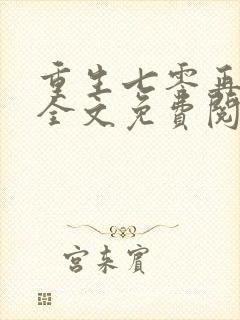 重生七零再
全文免费阅
宫来宾